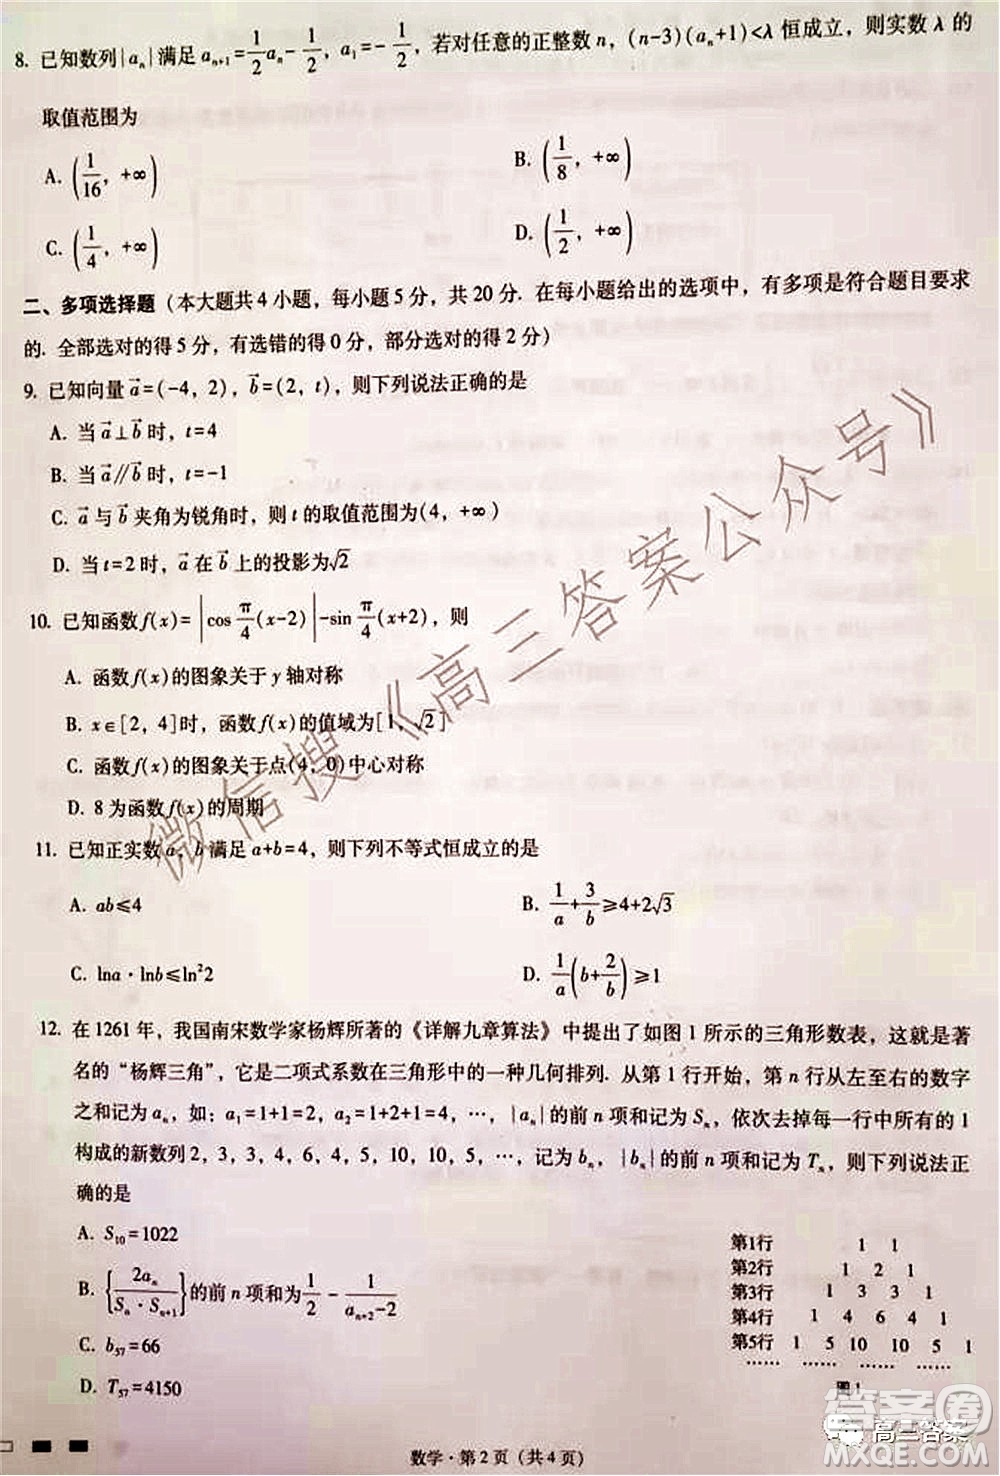 8. 已知数列{aₙ}满足 aₙ₊₁=1/2 aₙ-1/2, a₁=-1/2, 若对任意的正整数 n, (n-3)(aₙ+1)<λ 恒成立, 则实数 λ 的
取值范围为
A. (1/16, +∞) B. (1/8, +∞)
C. (1/4, +∞) D. (1/2, +∞)
二、多项选择题 (本大题共4小题, 每小题5分, 共20分. 在每小题给出的选项中, 有多项是符合题目要求
的. 全部选对的得5分, 有选错的得0分, 部分选对的得2分)
9. 已知向量 a⃗=(-4, 2), b⃗=(2, t), 则下列说法正确的是
A. 当 a⃗⊥b⃗ 时, t=4
B. 当 a⃗∥b⃗ 时, t=-1
C. a⃗ 与 b⃗ 夹角为锐角时, 则 t 的取值范围为(4, +∞)
D. 当 t=2 时, a⃗ 在 b⃗ 上的投影为√2
10. 已知函数 f(x)=|cos π/4 (x-2)|-sin π/4 (x+2), 则
A. 函数 f(x) 的图象关于 y 轴对称
B. x∈[2, 4]时, 函数 f(x) 的值域为[1, √2]
C. 函数 f(x) 的图象关于点(4, 0)中心对称
D. 8 为函数 f(x) 的周期
11. 已知正实数 a, b 满足 a+b=4, 则下列不等式恒成立的是
A. ab≤4 B. 1/a+3/b≥4+2√3
C. lna·lnb≤ln²2 D. 1/a(b+2/b)≥1
12. 在 1261 年, 我国南宋数学家杨辉所著的《详解九章算法》中提出了如图 1 所示的三角形数表, 这就是著
名的“杨辉三角”, 它是二项式系数在三角形中的一种几何排列. 从第 1 行开始, 第 n 行从左至右的数字
之和记为 aₙ, 如: a₁=1+1=2, a₂=1+2+1=4, …, {aₙ} 的前 n 项和记为 Sₙ, 依次去掉每一行中所有的 1
构成的新数列 2, 3, 3, 4, 6, 4, 5, 10, 10, 5, …, 记为 bₙ, {bₙ} 的前 n 项和记为 Tₙ, 则下列说法正
确的是
A. S₁₀=1022
B. {2aₙ/(Sₙ·Sₙ₊₁)} 的前 n 项和为 1/2-1/(aₙ₊₂-2)
C. b₅₇=66
D. T₅₇=4150
第1行 1 1
第2行 1 2 1
第3行 1 3 3 1
第4行 1 4 6 4 1
第5行 1 5 10 10 5 1
…… …… …… ……
图 1
数学·第 2 页 (共 4 页)
微信搜《高三答案公众号》
高三答案
答案圈
MXQE.COM